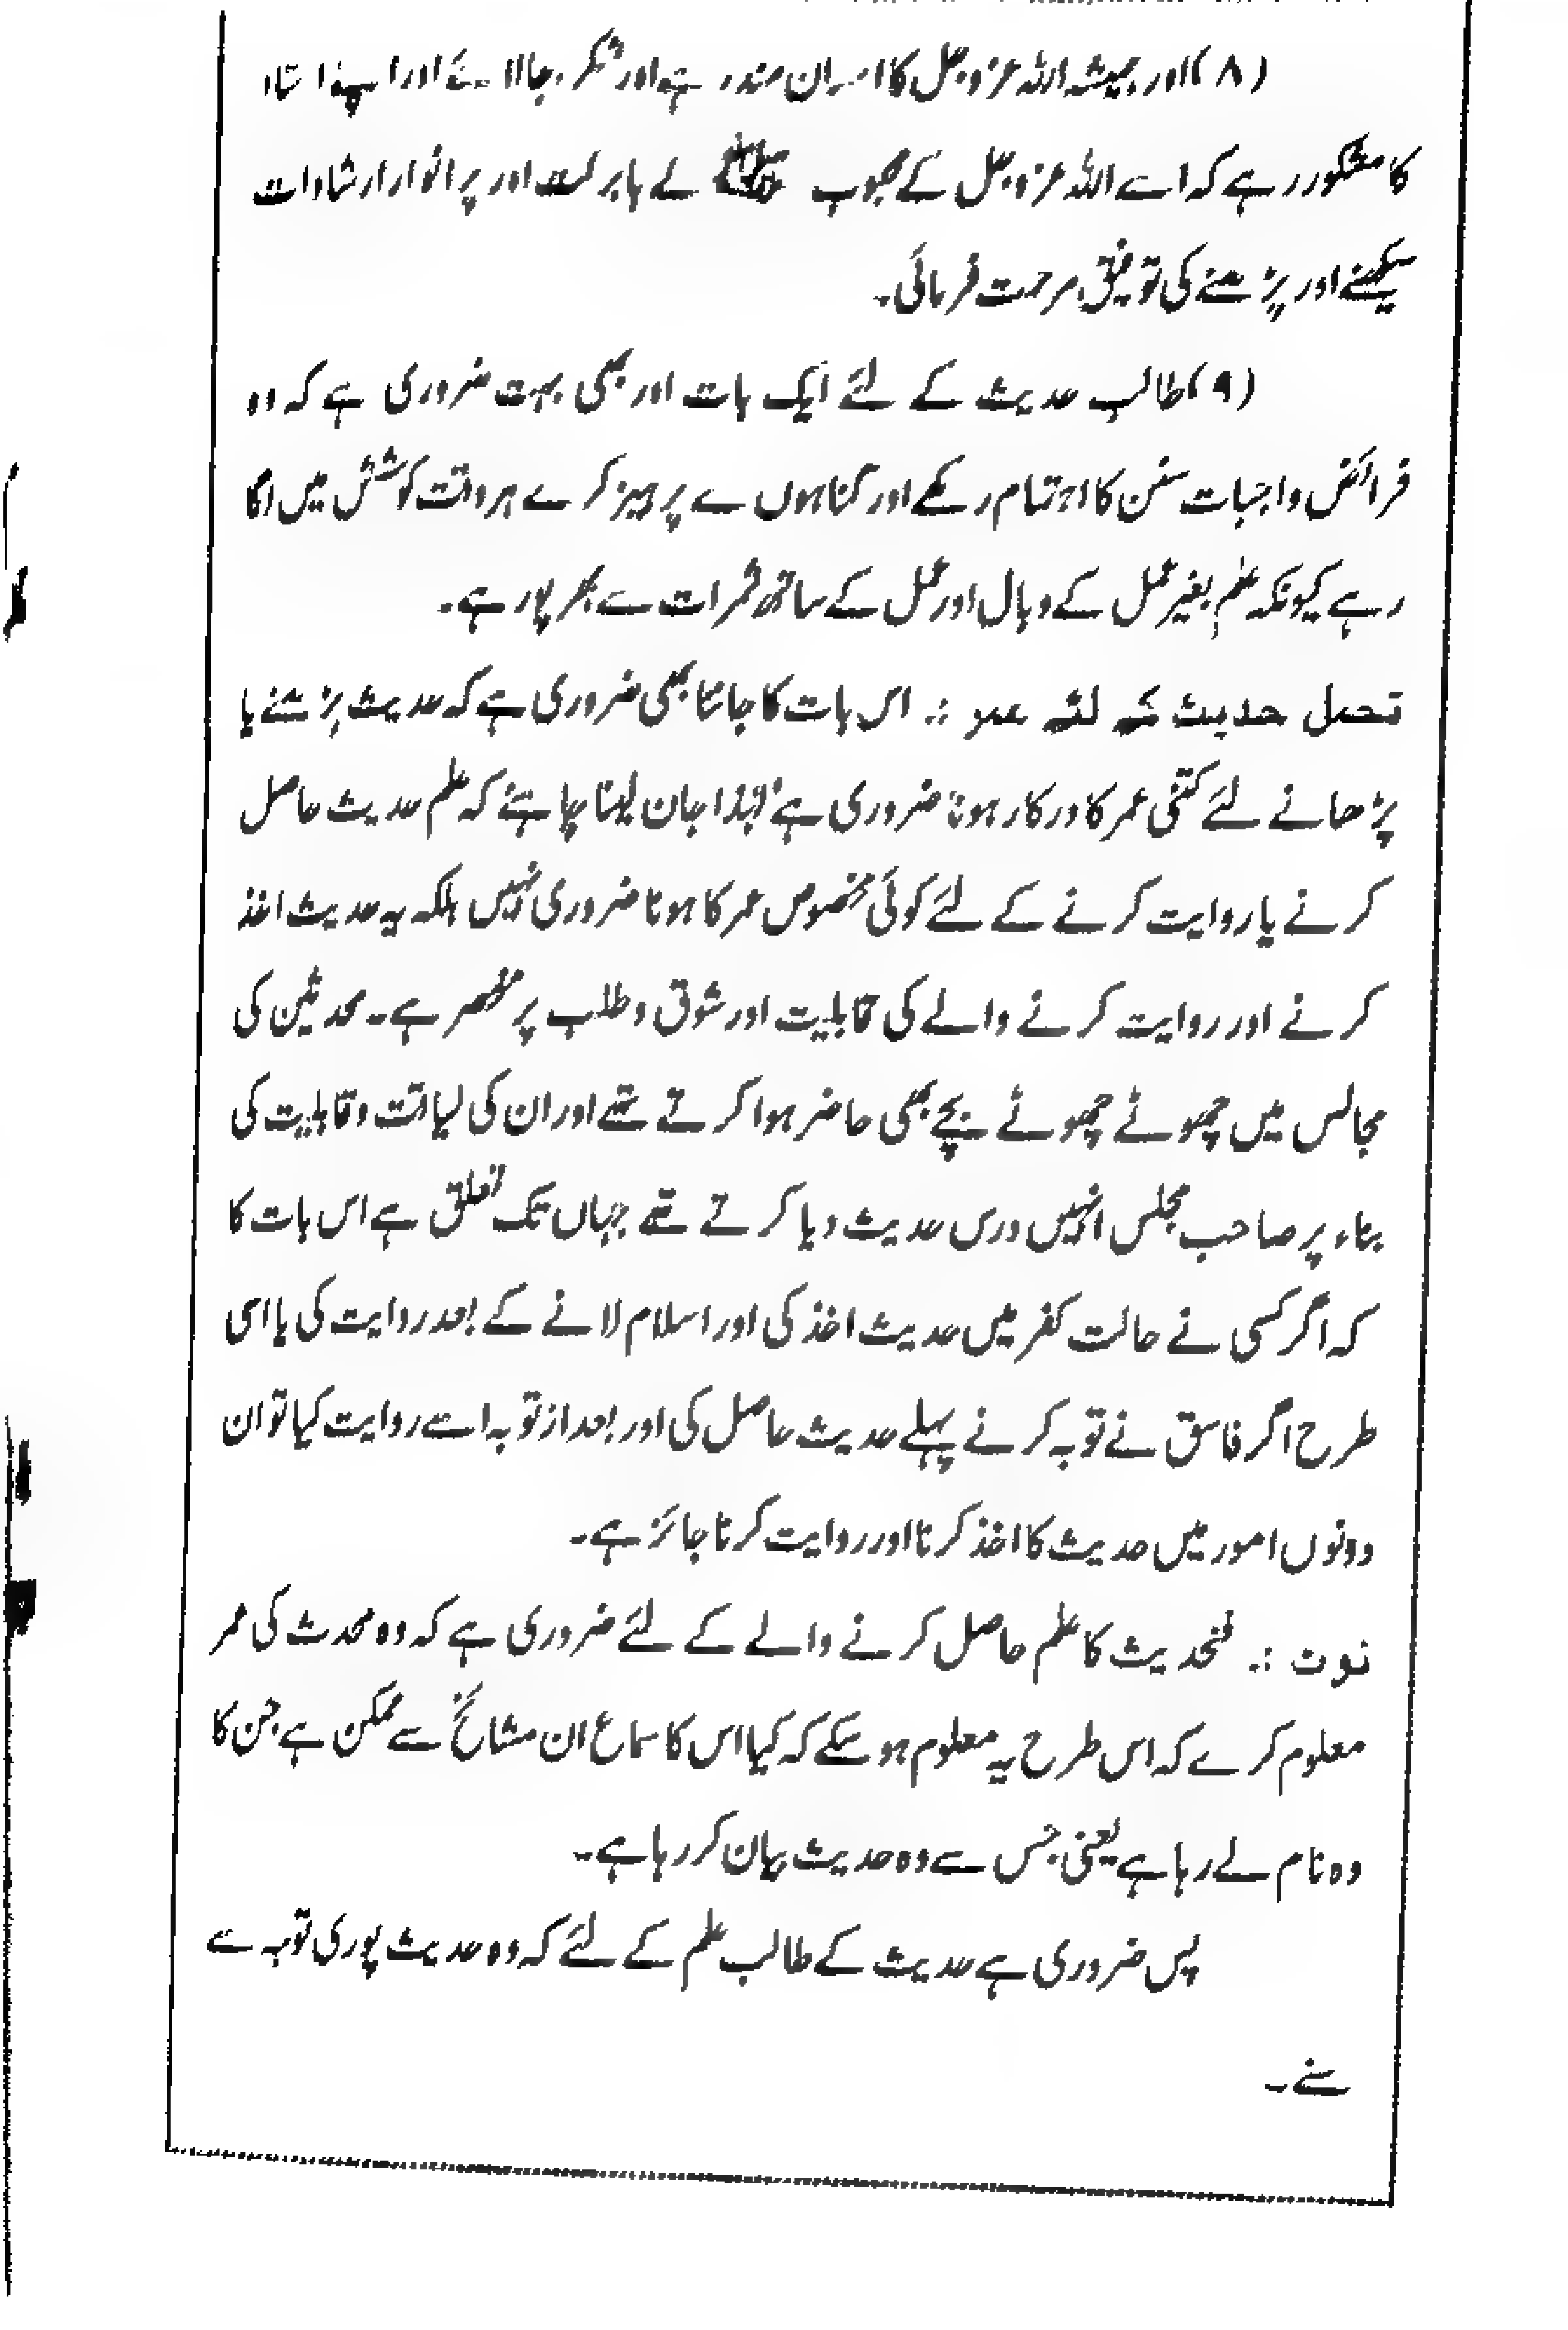 (۸) اور ہمیشہ اللہ عزوجل کا احسان مند رہے اور شکر بجا لائے اور اپنے استاد
کا مشکور رہے کہ اسے اللہ عزوجل کے محبوب ﷺ کے بابرکت اور پر انوار ارشادات
سیکھنے اور پڑھنے کی توفیق مرحمت فرمائی۔
(۹) طالب حدیث کے لئے ایک بات اور بھی بہت ضروری ہے کہ وہ
فرائض واجبات سنن کا اہتمام رکھے اور گناہوں سے پرہیز کرے ہر وقت کوشش میں لگا
رہے کیونکہ علم بغیر عمل کے وبال اور عمل کے ساتھ ثمرات سے بھرپور ہے۔
تحمل حدیث کے لئے عمر :. اس بات کا جاننا بھی ضروری ہے کہ حدیث پڑھنے یا
پڑھانے لئے کتنی عمر کا درکار ہونا ضروری ہے لہٰذا جان لینا چاہئے کہ علم حدیث حاصل
کرنے یا روایت کرنے کے لئے کوئی مخصوص عمر کا ہونا ضروری نہیں بلکہ یہ حدیث اخذ
کرنے اور روایت کرنے والے کی قابلیت اور شوق و طلب پر منحصر ہے۔ محدثین کی
مجالس میں چھوٹے چھوٹے بچے بھی حاضر ہوا کرتے تھے اور ان کی لیاقت و قابلیت کی
بناء پر صاحب مجلس انہیں درس حدیث دیا کرتے تھے جہاں تک تعلق ہے اس بات کا
کہ اگر کسی نے حالت کفر میں حدیث اخذ کی اور اسلام لانے کے بعد روایت کی یا اسی
طرح اگر فاسق نے توبہ کرنے پہلے حدیث حاصل کی اور بعد از توبہ اسے روایت کیا تو ان
دونوں امور میں حدیث کا اخذ کرنا اور روایت کرنا جائز ہے۔
نوٹ :. حدیث کا علم حاصل کرنے والے کے لئے ضروری ہے کہ وہ محدث کی عمر
معلوم کرے کہ اس طرح یہ معلوم ہو سکے کہ کیا اس کا سماع ان مشائخ سے ممکن ہے جن کا
وہ نام لے رہا ہے یعنی جس سے وہ حدیث بیان کر رہا ہے۔
پس ضروری ہے حدیث کے طالب علم کے لئے کہ وہ حدیث پوری توبہ سے
سنے۔